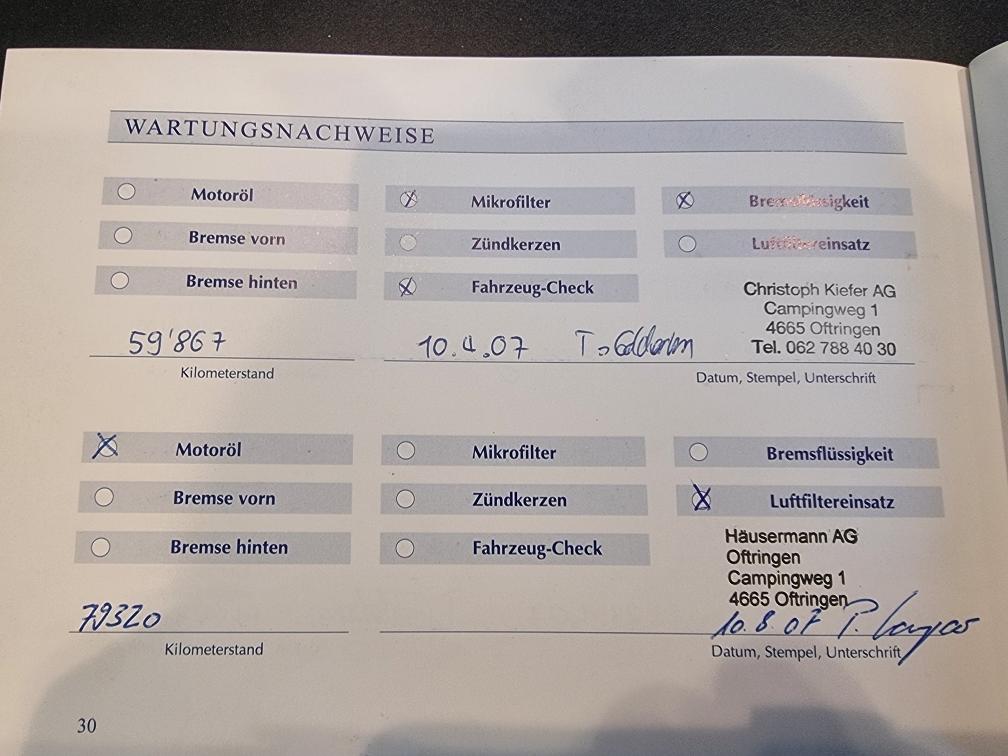 WARTUNGSNACHWEISE
Motoröl Mikrofilter Bremsflüssigkeit
Bremse vorn Zündkerzen Luftfiltereinsatz
Bremse hinten Fahrzeug-Check
Christoph Kiefer AG
Campingweg 1
4665 Oftringen
Tel. 062 788 40 30
59'867 10.4.07
Kilometerstand Datum, Stempel, Unterschrift
Motoröl Mikrofilter Bremsflüssigkeit
Bremse vorn Zündkerzen Luftfiltereinsatz
Bremse hinten Fahrzeug-Check
Häusermann AG
Oftringen
Campingweg 1
4665 Oftringen
79320 10.8.07
Kilometerstand Datum, Stempel, Unterschrift
30